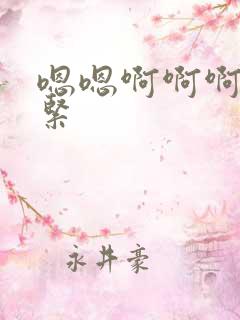 嗯嗯啊啊啊
緊
永井豪